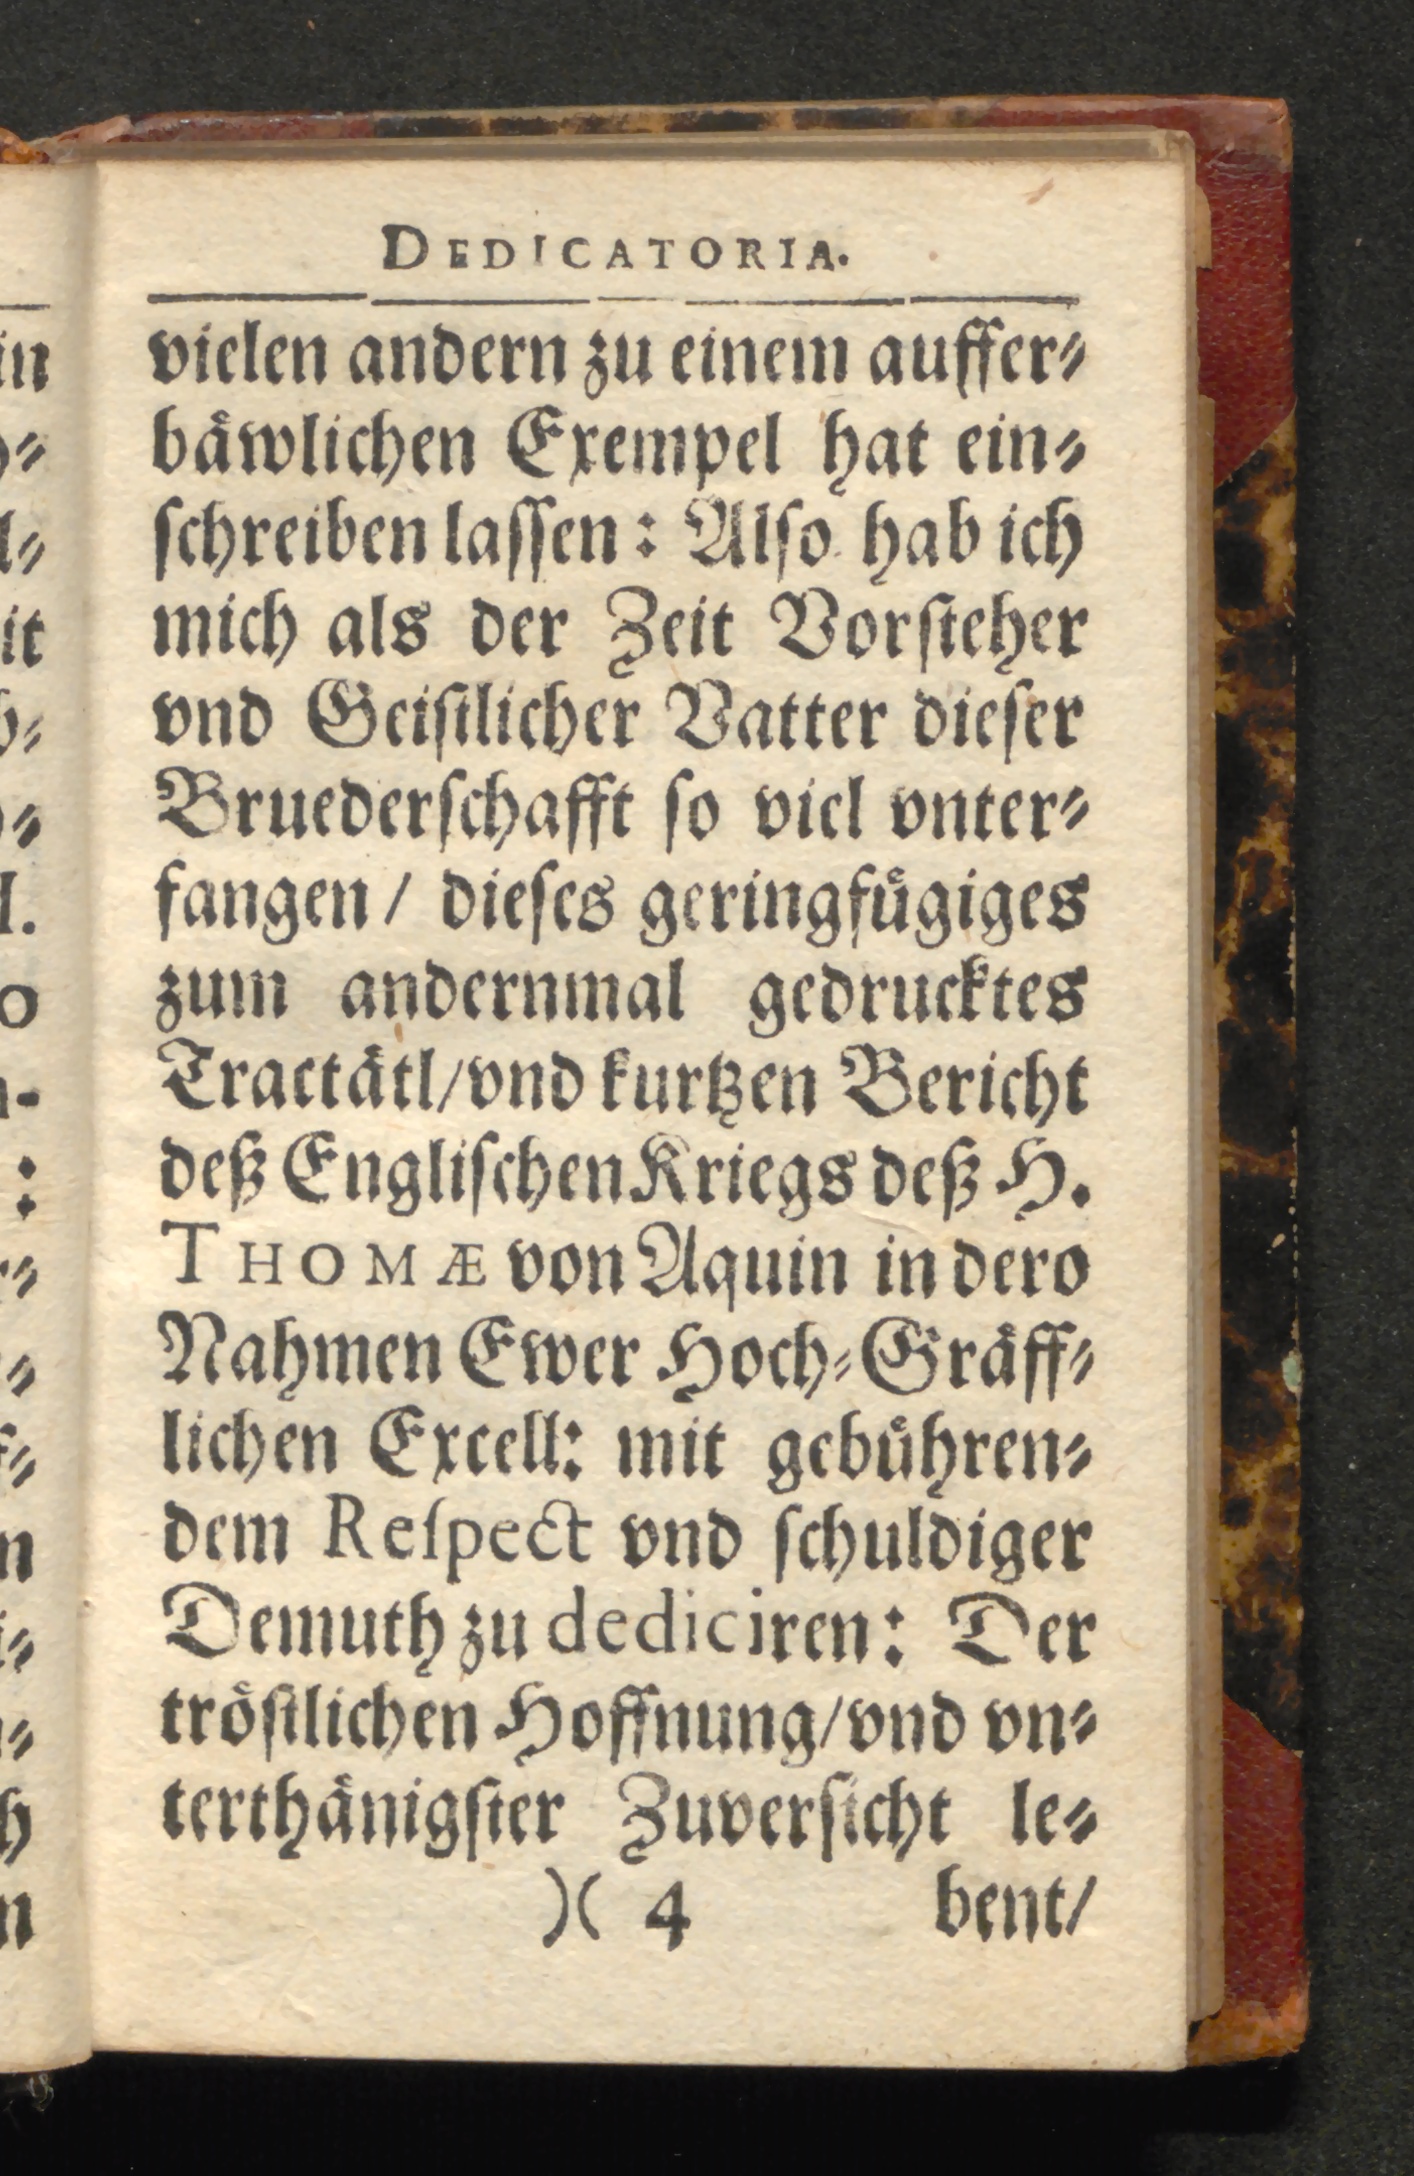 DEDICATORIA.
vielen andern zu einem auffer⸗
baͤwlichen Exempel hat ein⸗
ſchreiben laſſen: Alſo hab ich
mich als der Zeit Vorſteher
vnd Geiſtlicher Vatter dieſer
Bruederſchafft ſo viel vnter⸗
fangen / dieſes geringfuͤgiges
zum andernmal gedrucktes
Tractaͤtl/vnd kurtzen Bericht
deß Engliſchen Kriegs deß H.
THOMÆ von Aquin in dero
Nahmen Ewer Hoch⸗Graͤff⸗
lichen Excell: mit gebuͤhren⸗
dem Reſpect vnd ſchuldiger
Demuth zu dediciren: Der
troͤſtlichen Hoffnung/vnd vn⸗
terthaͤnigſter Zuverſicht le⸗
)( 4 bent/